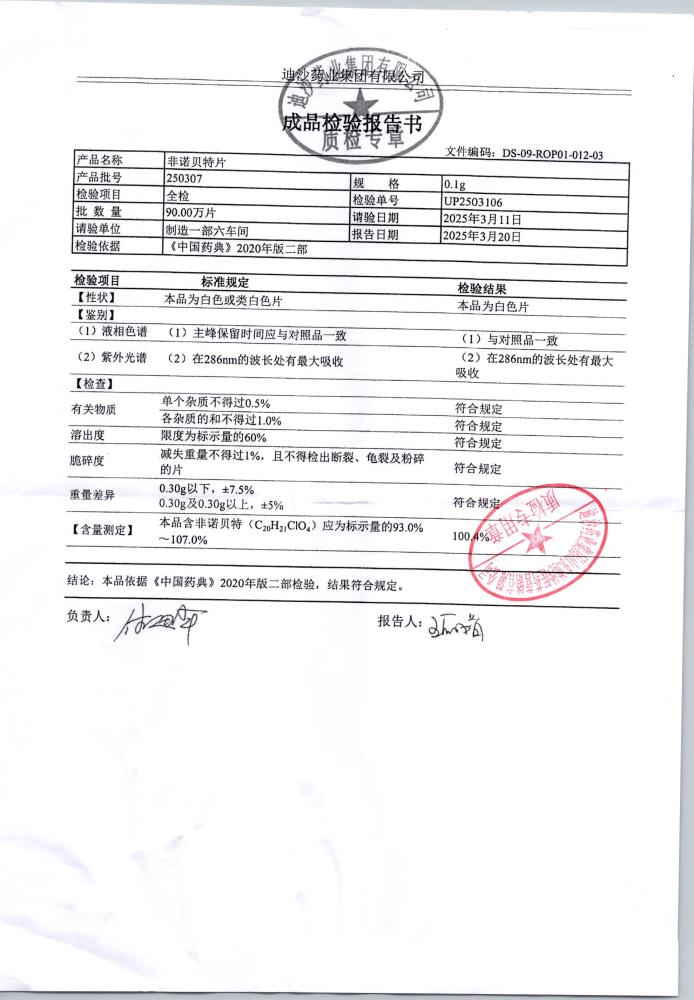 迪沙药业集团有限公司
成品检验报告书
迪沙药业集团有限公司
质检专章
文件编码：DS-09-ROP01-012-03
产品名称 非诺贝特片
产品批号 250307 规 格 0.1g
检验项目 全检 检验单号 UP2503106
批 数 量 90.00万片 请验日期 2025年3月11日
请验单位 制造一部六车间 报告日期 2025年3月20日
检验依据 《中国药典》2020年版二部
检验项目 标准规定 检验结果
【性状】 本品为白色或类白色片 本品为白色片
【鉴别】
（1）液相色谱 （1）主峰保留时间应与对照品一致 （1）与对照品一致
（2）紫外光谱 （2）在286nm的波长处有最大吸收 （2）在286nm的波长处有最大
吸收
【检查】
有关物质 单个杂质不得过0.5% 符合规定
各杂质的和不得过1.0% 符合规定
溶出度 限度为标示量的60% 符合规定
脆碎度 减失重量不得过1%，且不得检出断裂、龟裂及粉碎
的片 符合规定
重量差异 0.30g以下，±7.5%
0.30g及0.30g以上，±5% 符合规定
【含量测定】 本品含非诺贝特（C₂₀H₂₁ClO₄）应为标示量的93.0%
～107.0% 100.4%
质检专用章
结论：本品依据《中国药典》2020年版二部检验，结果符合规定。
负责人： 报告人：